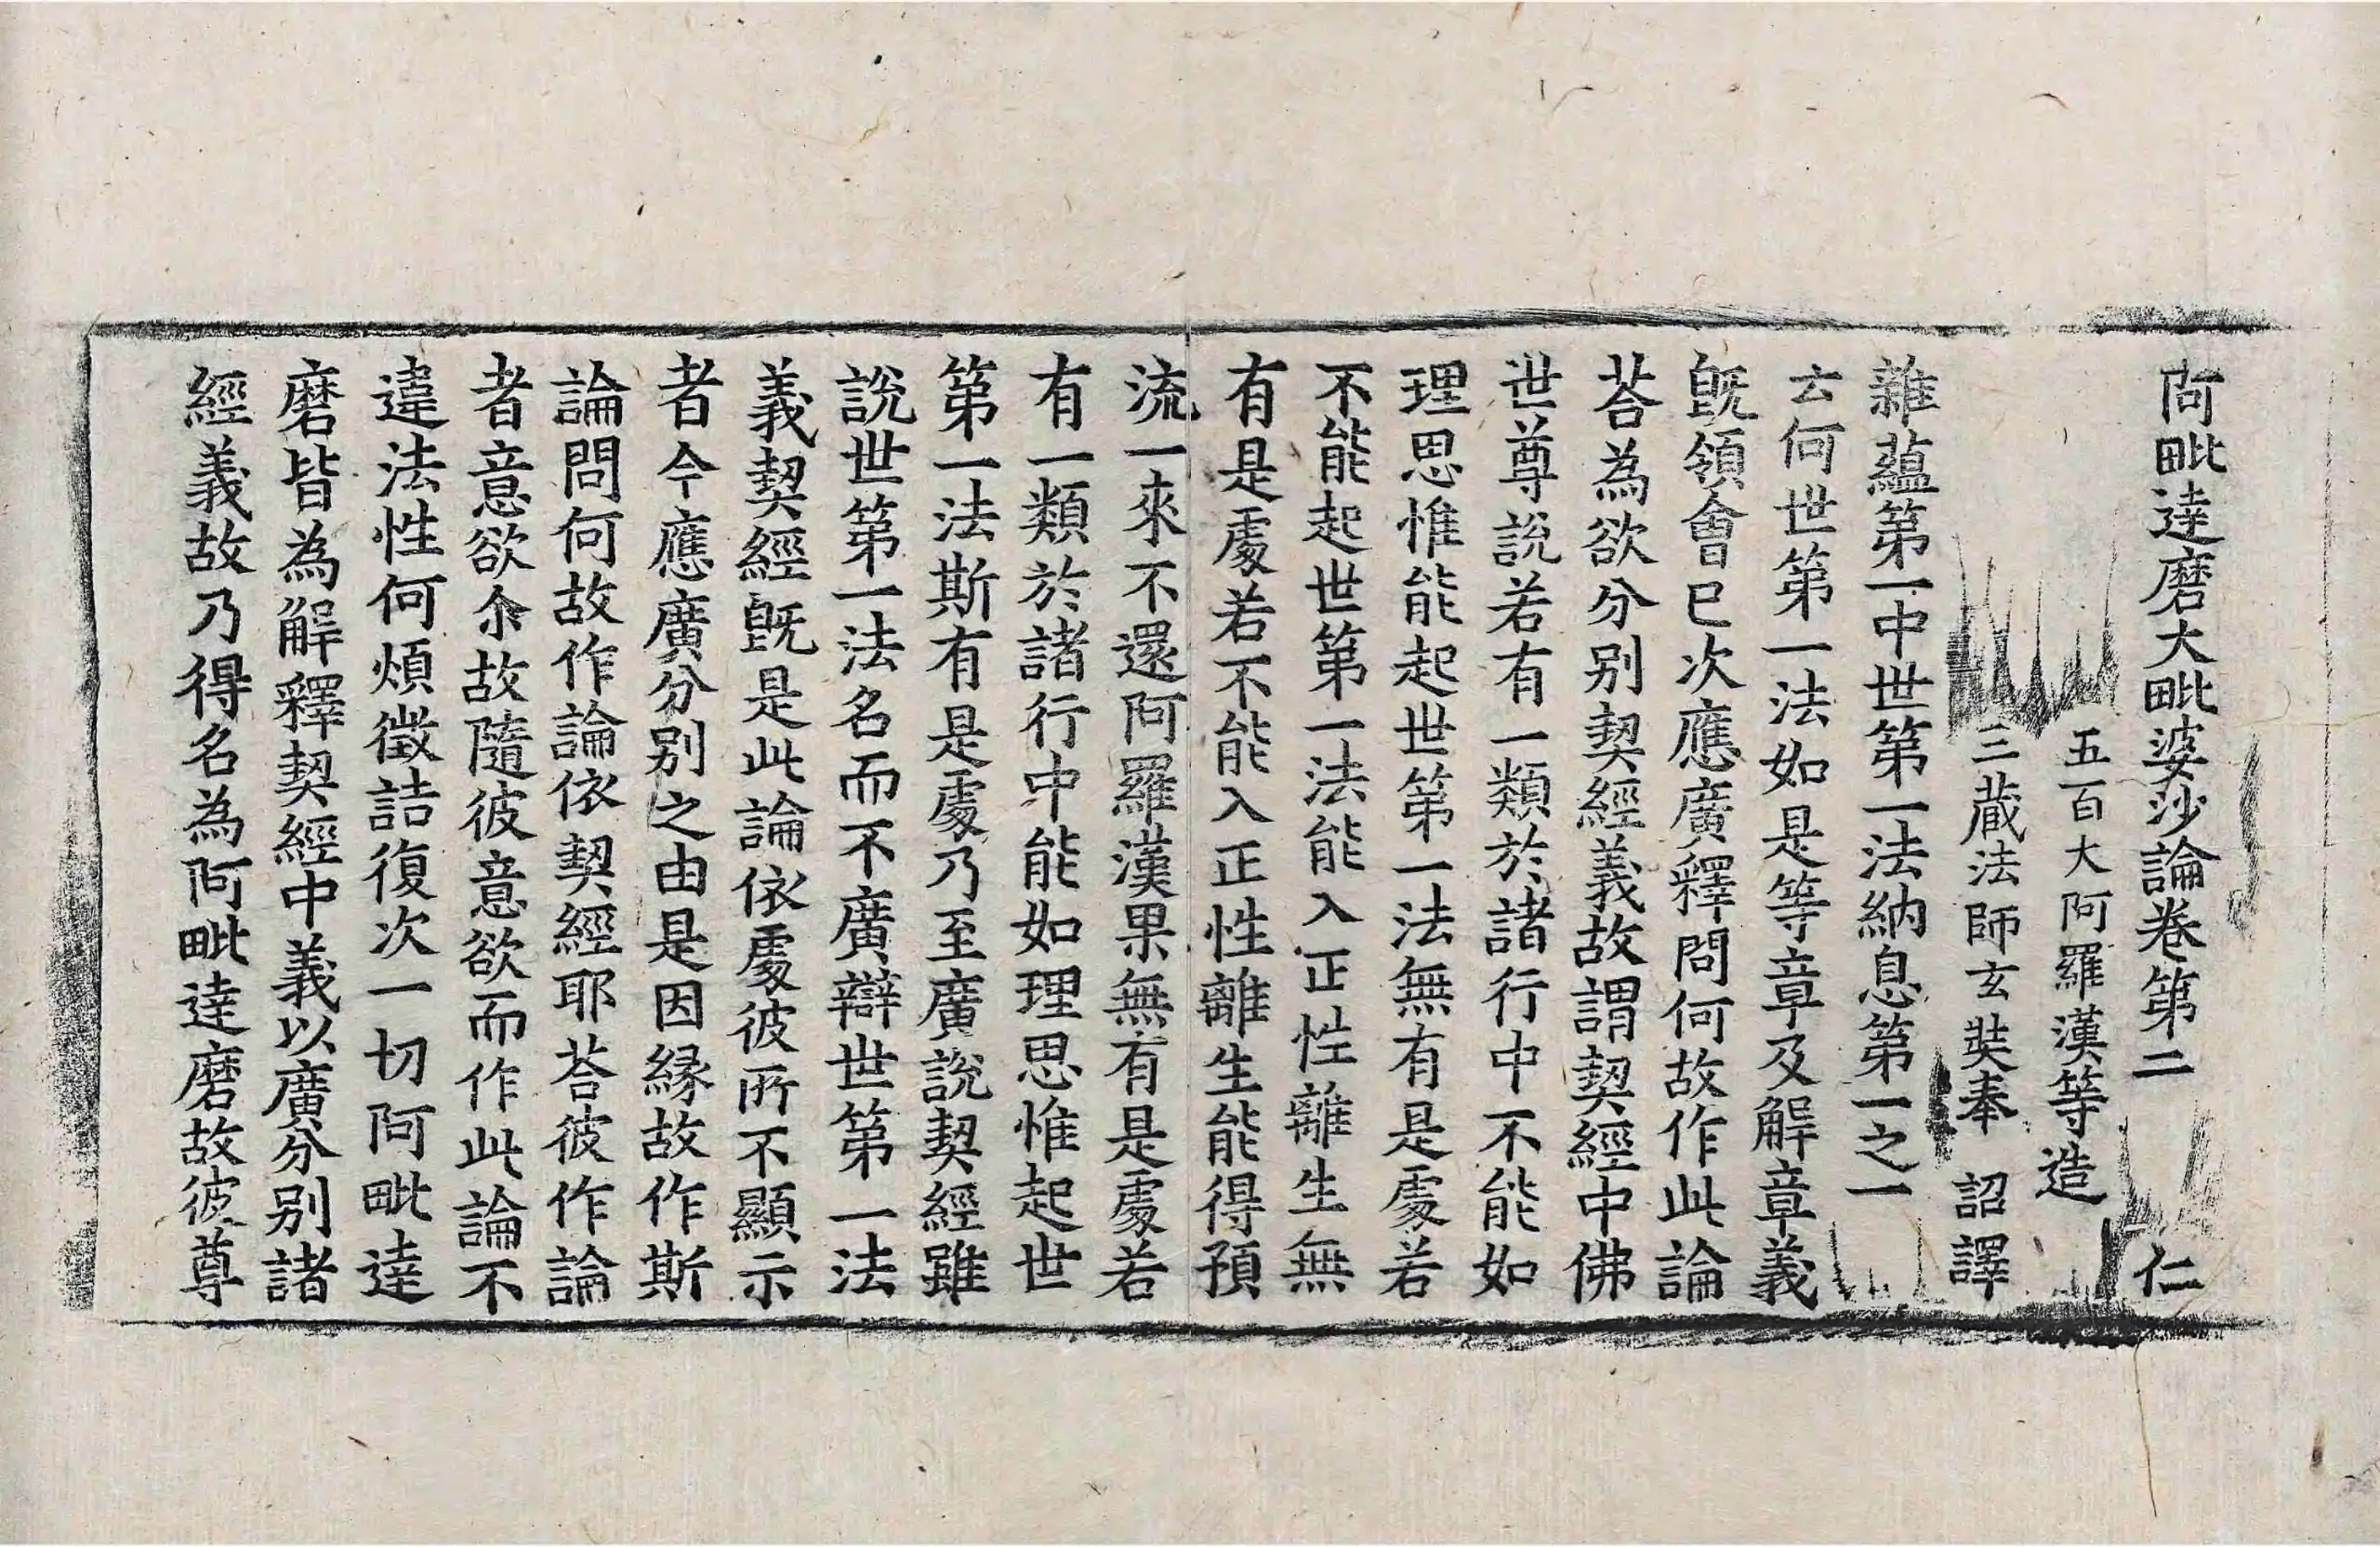 阿毗達磨大毗婆沙論卷第二　仁
五百大阿羅漢等造
三蔵法師玄奘奉　詔譯
雜蘊第一中世第一法納息第一之一
云何世第一法如是等章及解章義
旣領會已次應廣釋問何故作此論
荅為欲分别契經義故謂契經中佛
世尊說若有一類於諸行中不能如
理思惟能起世第一法無有是處若
不能起世第一法能入正性離生無
有是處若不能入正性離生能得預
流一來不還阿羅漢果無有是處若
有一類於諸行中能如理思惟起世
第一法斯有是處乃至廣說契經雖
說世第一法名而不廣辯世第一法
義契經旣是此論依處彼所不顯示
者今應廣分别之由是因緣故作斯
論問何故作論依契經耶荅彼作論
者意欲尒故隨彼意欲而作此論不
違法性何煩徵詰復次一切阿毗達
磨皆為解釋契經中義以廣分别諸
經義故乃得名為阿毗達磨故彼尊